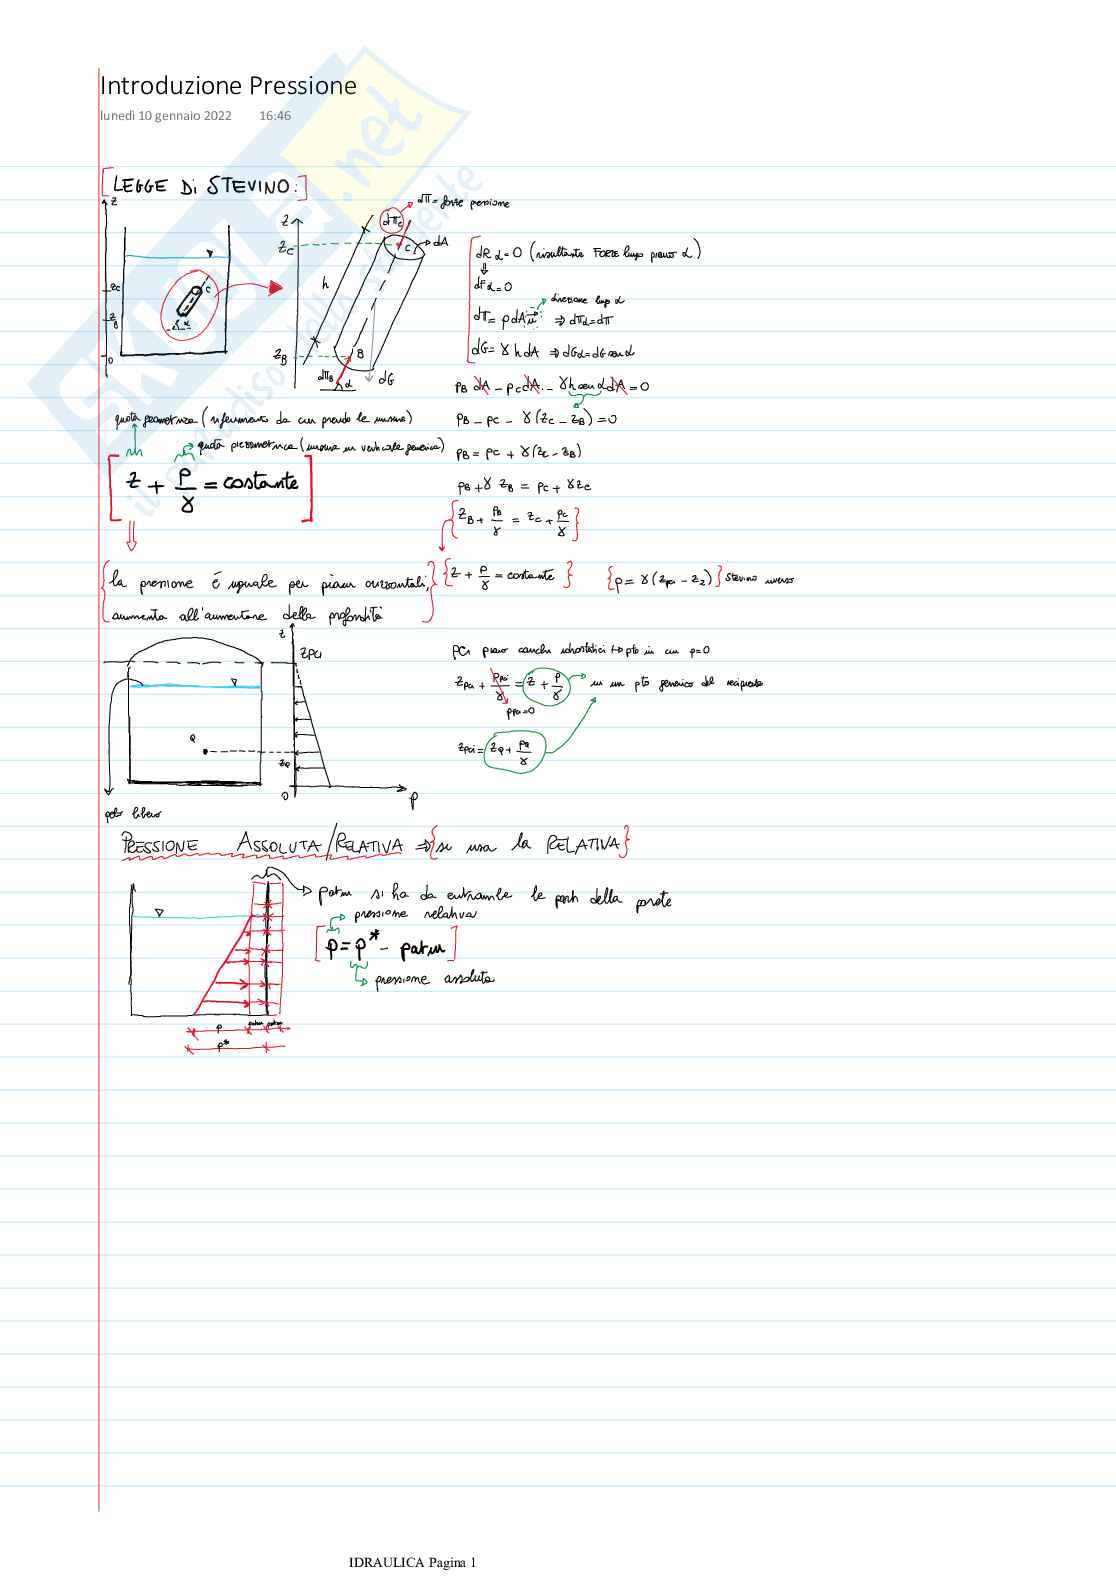 Introduzione Pressione
lunedì 10 gennaio 2022 16:46
[LEGGE Di STEVINO:]
dΠ = forze pressione
z
z
zC
dΠc
C
dA
h
zC
zB
0
C
α
zB
B
dΠB
α
dG
dRα=0 (risultante FORZE lungo piano α)
⇓
dFα=0
direzione lungo α
dΠ= p dA μ ⇒ dΠα=dΠ
dG= γ h dA ⇒ dGα=dG senα
pB dA - pC dA - γ h sen α dA = 0
quota geometrica (riferimento da cui prendo le misure)
pB - pC - γ (zC - zB) = 0
quota piezometrica (misura in verticale generica)
pB = pC + γ (zC - zB)
[z + p/γ = costante]
pB + γ zB = pC + γ zC
{zB + pB/γ = zC + pC/γ}
{la pressione è uguale per piani orizzontali,
aumenta all'aumentare della profondità}
{z + p/γ = costante}
{p = γ (zpci - z2)} Stevino inverso
z
zPCi
Q
zQ
0
p
pelo libero
PCi piano carichi idrostatici ↦ pto in cui p=0
zpci + ppci/γ = z + p/γ → in un pto generico del recipiente
ppci=0
zpci = zQ + pQ/γ
PRESSIONE ASSOLUTA/RELATIVA ⇒ {si usa la RELATIVA}
patm si ha da entrambe le parti della parete
pressione relativa
[p = p* - patm]
pressione assoluta
p patm patm
p*
SKUOLA.net
IDRAULICA Pagina 1